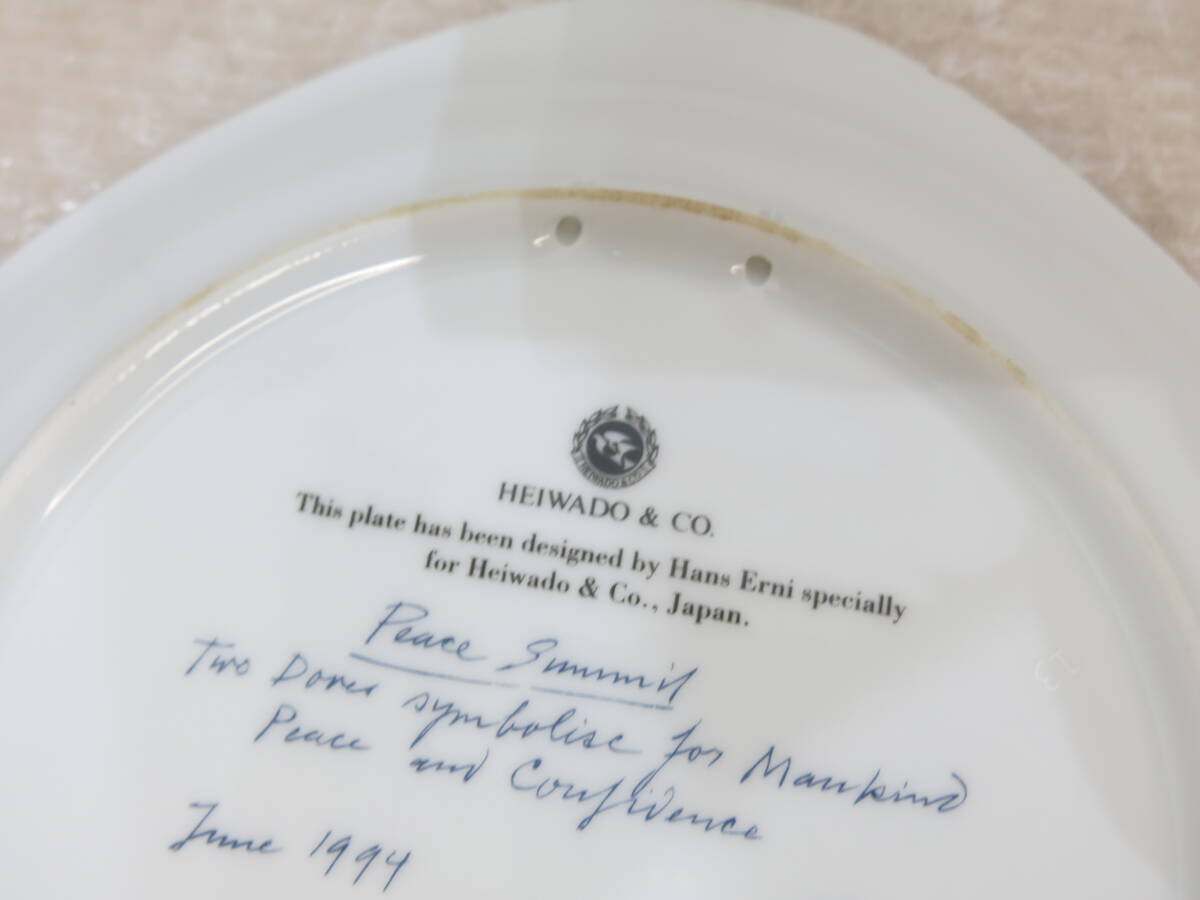 HEIWADO & CO.
HEIWADO & CO.
This plate has been designed by Hans Erni specially
for Heiwado & Co., Japan.
Peace Summit
Two Doves symbolise for Mankind
Peace and Confidence
June 1994